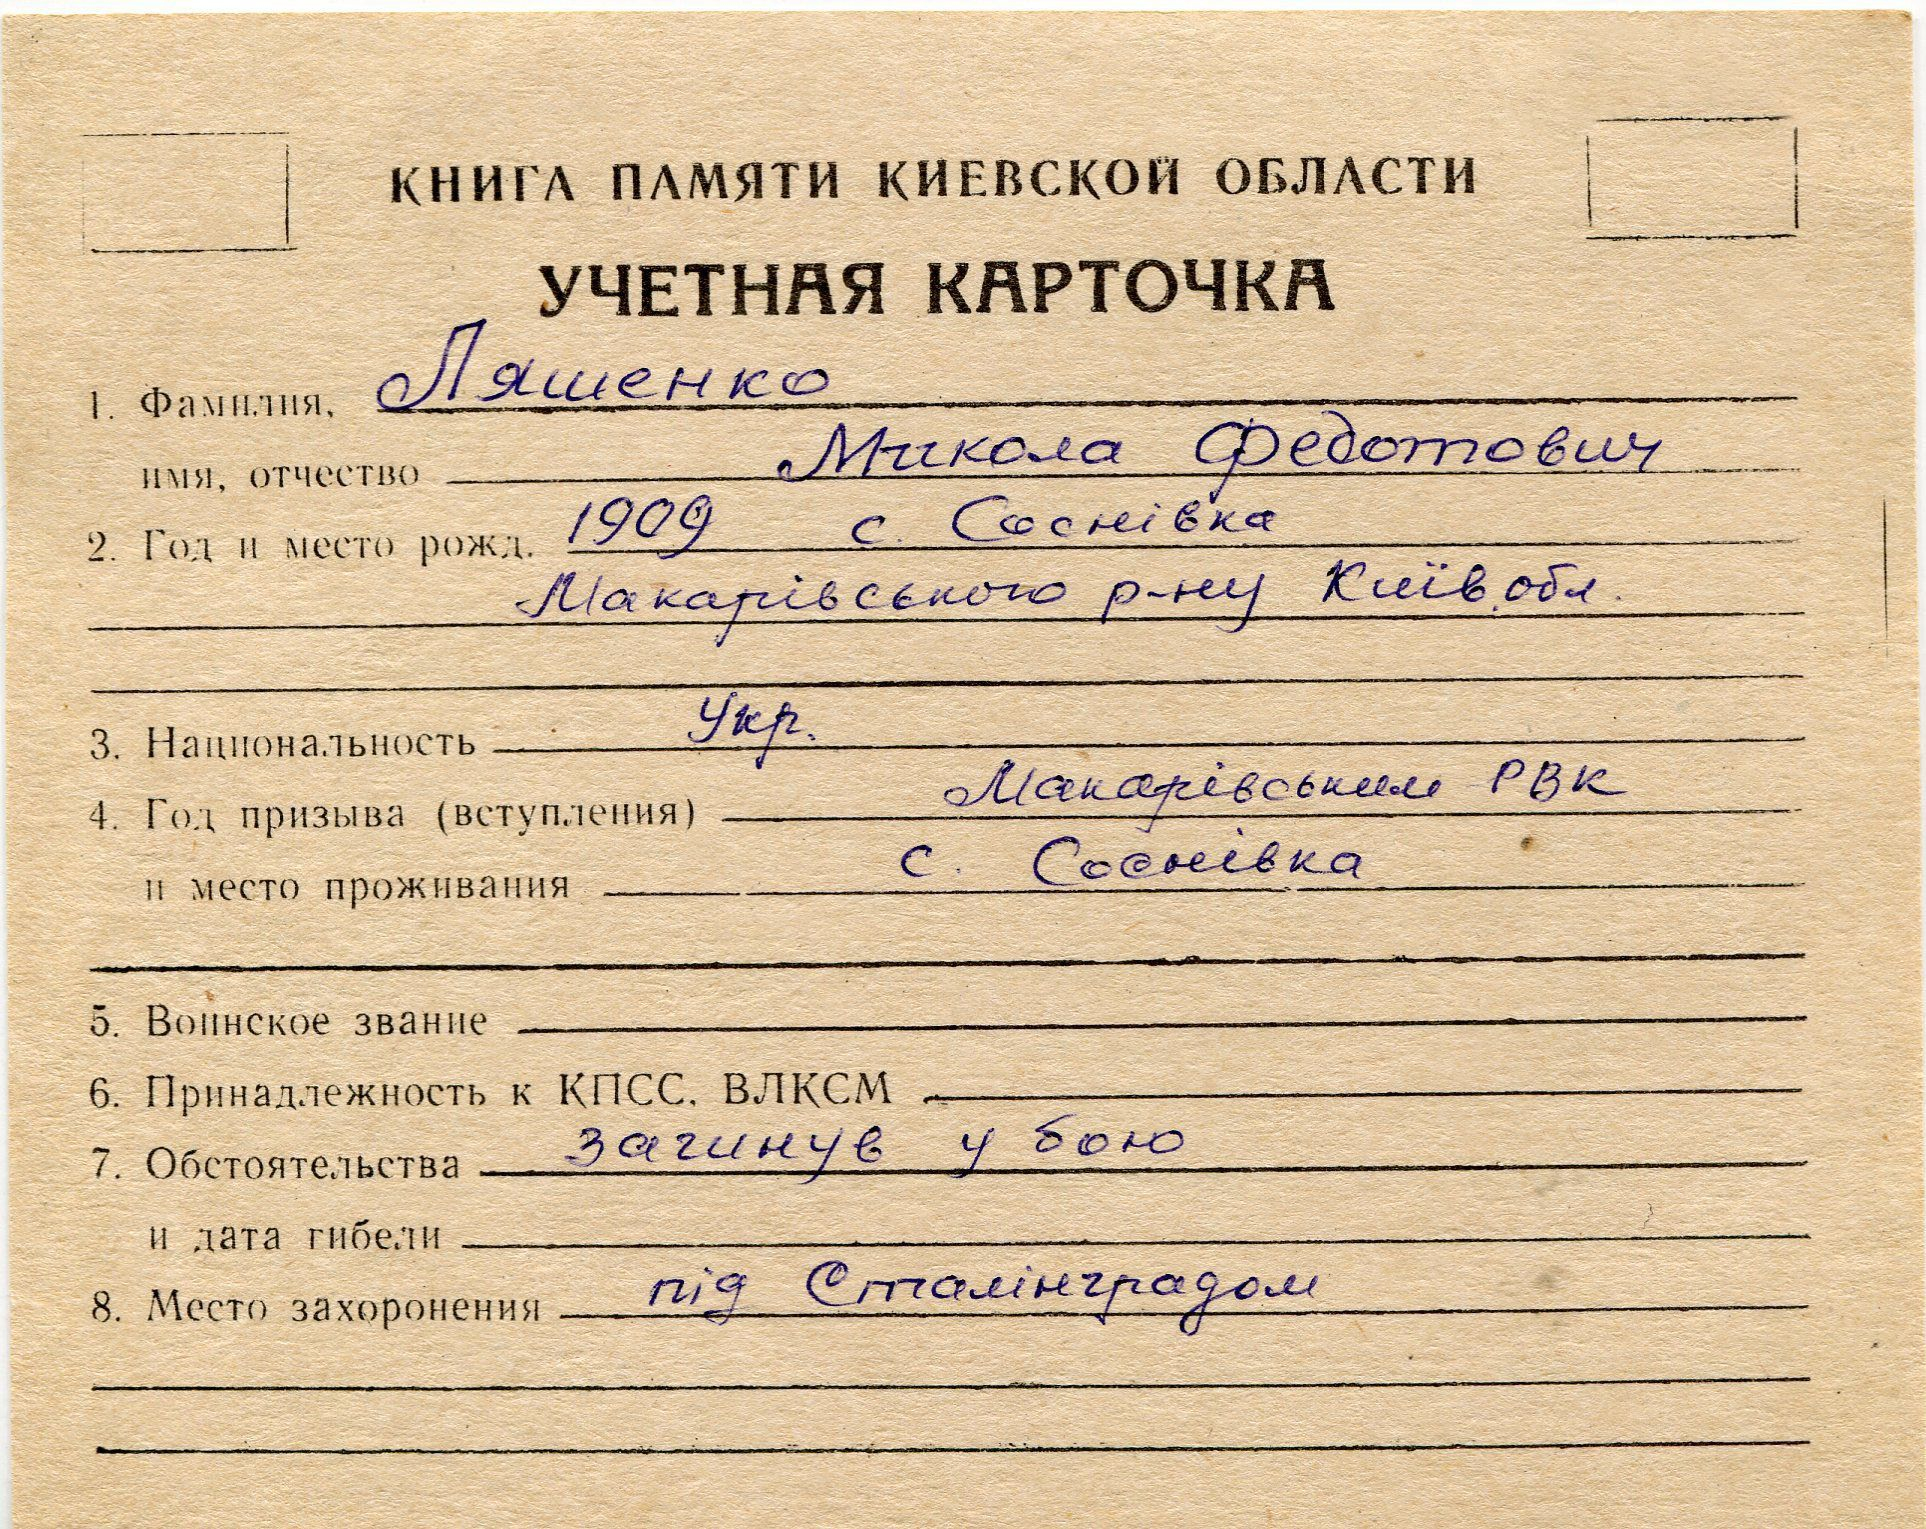 КНИГА ПАМЯТИ КИЕВСКОЙ ОБЛАСТИ
УЧЕТНАЯ КАРТОЧКА
1. Фамилия, Ляшенко
имя, отчество Микола Федотович
2. Год и место рожд. 1909 с. Соснівка
Макарівського р-ну Київ. обл.
3. Национальность Укр.
4. Год призыва (вступления) Макарівським РВК
и место проживания с. Соснівка
5. Воинское звание
6. Принадлежность к КПСС, ВЛКСМ
7. Обстоятельства загинув у бою
и дата гибели
8. Место захоронения під Сталінградом